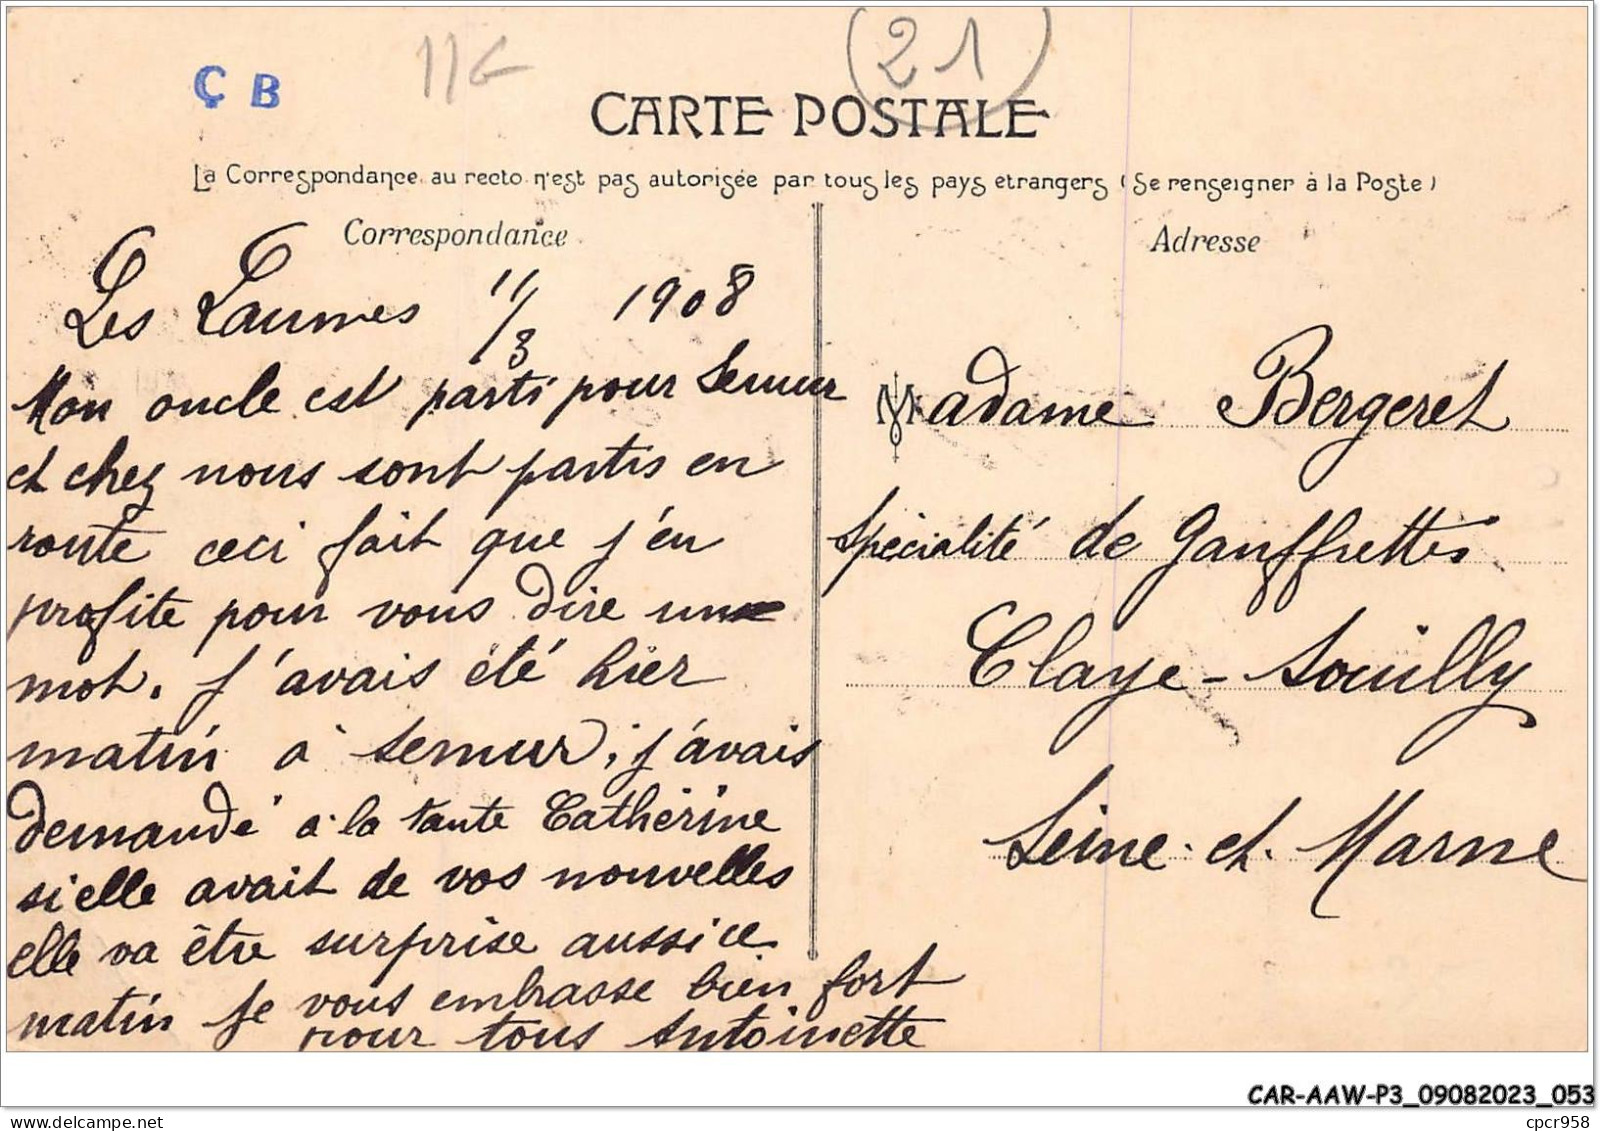 ÇB
11G
(21)
CARTE POSTALE
La Correspondance au recto n'est pas autorisée par tous les pays etrangers (Se renseigner à la Poste)
Correspondance
Les Laumes 11/3 1908
Mon oncle est parti pour Semur
et chez nous sont partis en
route ceci fait que j'en
profite pour vous dire un
mot. J'avais été hier
matin à Semur, j'avais
demandé à la tante Cathérine
si elle avait de vos nouvelles
elle va être surprise aussi ce
matin je vous embrasse bien fort
pour tous Antoinette
Adresse
Madame Bergeret
Spécialité de Gauffrettes
Claye-Souilly
Seine-et-Marne
CAR-AAW-P3_09082023_053
delcampe.net
cpcr958